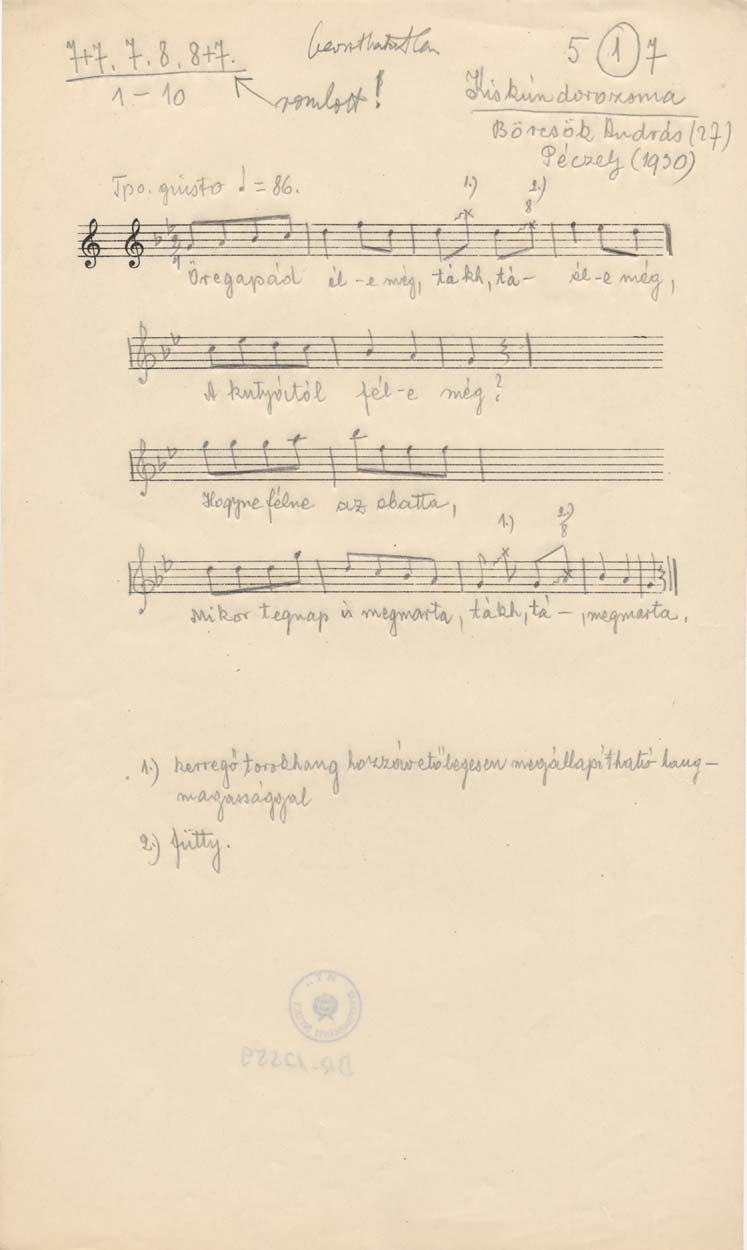 7+7, 7, 8, 8+7.
1–10
romlott!
5 1 7
Kiskúndorozsma
Börcsök András (27)
Péczely (1930)
Tpo. giusto ♩ = 86.
1.) 2.)
8
Öregapád él-e még, tákh, tá– él-e még,
A kutyától fél-e még?
Hogyne félne az ebatta,
1.) 2.)
8
Mikor tegnap is megmarta, tákh, tá–, megmarta.
1.) kerregő torokhang hozzávetőlegesen megállapítható hang-
magassággal
2.) fütty.